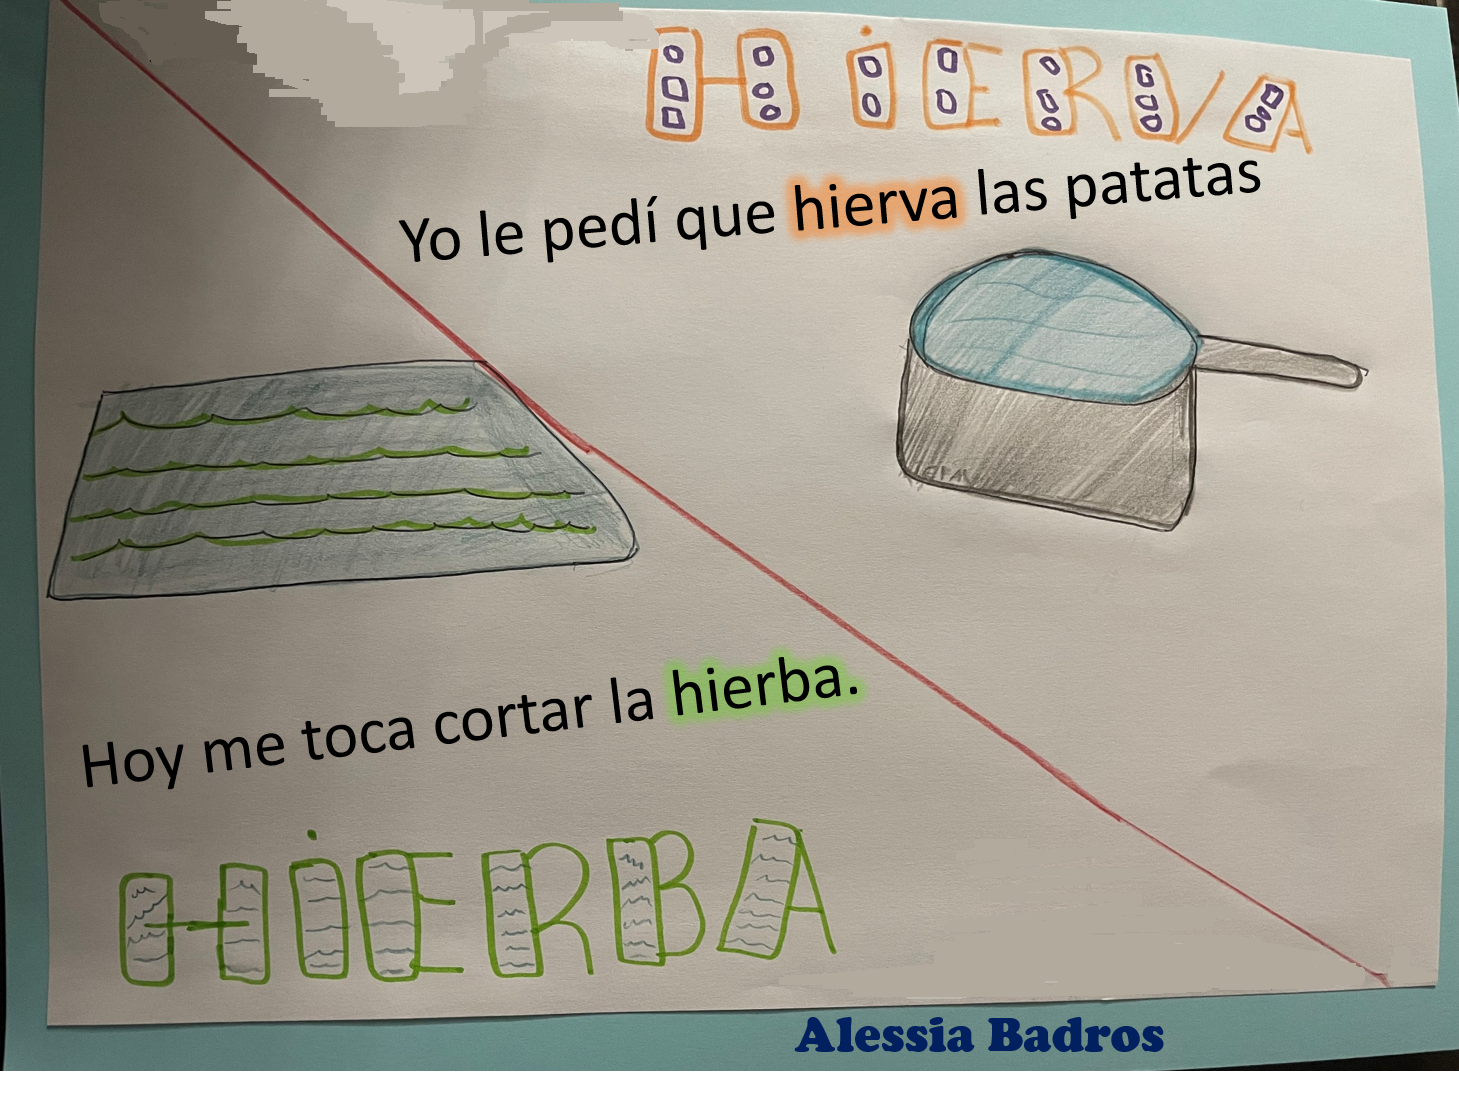 HiERVA
Yo le pedí que hierva las patatas
Hoy me toca cortar la hierba.
HiERBA
Alessia Badros